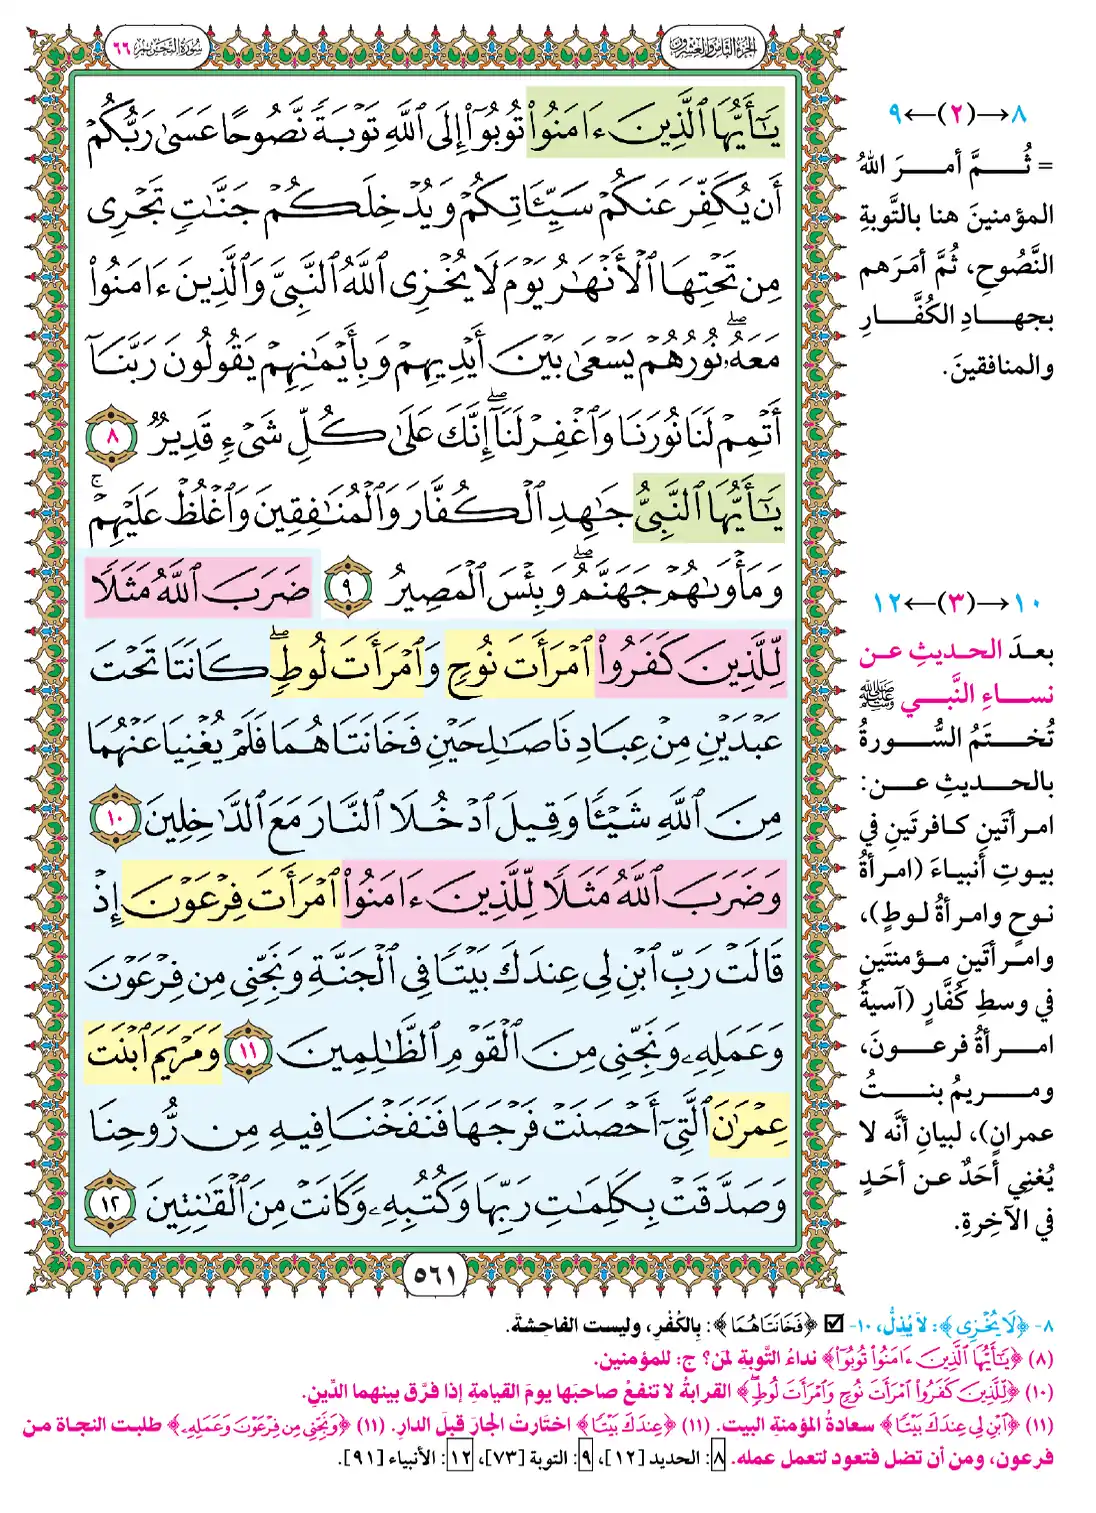 الجزء الثامن والعشرون
سورة التحريم ٦٦
يَٰٓأَيُّهَا ٱلَّذِينَ ءَامَنُوا۟ تُوبُوٓا۟ إِلَى ٱللَّهِ تَوْبَةً نَّصُوحًا عَسَىٰ رَبُّكُمْ
أَن يُكَفِّرَ عَنكُمْ سَيِّـَٔاتِكُمْ وَيُدْخِلَكُمْ جَنَّٰتٍ تَجْرِى
مِن تَحْتِهَا ٱلْأَنْهَٰرُ يَوْمَ لَا يُخْزِى ٱللَّهُ ٱلنَّبِىَّ وَٱلَّذِينَ ءَامَنُوا۟
مَعَهُۥ ۖ نُورُهُمْ يَسْعَىٰ بَيْنَ أَيْدِيهِمْ وَبِأَيْمَٰنِهِمْ يَقُولُونَ رَبَّنَآ
أَتْمِمْ لَنَا نُورَنَا وَٱغْفِرْ لَنَآ ۖ إِنَّكَ عَلَىٰ كُلِّ شَىْءٍ قَدِيرٌ ٨
يَٰٓأَيُّهَا ٱلنَّبِىُّ جَٰهِدِ ٱلْكُفَّارَ وَٱلْمُنَٰفِقِينَ وَٱغْلُظْ عَلَيْهِمْ ۚ
وَمَأْوَىٰهُمْ جَهَنَّمُ ۖ وَبِئْسَ ٱلْمَصِيرُ ٩ ضَرَبَ ٱللَّهُ مَثَلًا
لِّلَّذِينَ كَفَرُوا۟ ٱمْرَأَتَ نُوحٍ وَٱمْرَأَتَ لُوطٍ ۖ كَانَتَا تَحْتَ
عَبْدَيْنِ مِنْ عِبَادِنَا صَٰلِحَيْنِ فَخَانَتَاهُمَا فَلَمْ يُغْنِيَا عَنْهُمَا
مِنَ ٱللَّهِ شَيْـًٔا وَقِيلَ ٱدْخُلَا ٱلنَّارَ مَعَ ٱلدَّٰخِلِينَ ١٠
وَضَرَبَ ٱللَّهُ مَثَلًا لِّلَّذِينَ ءَامَنُوا۟ ٱمْرَأَتَ فِرْعَوْنَ إِذْ
قَالَتْ رَبِّ ٱبْنِ لِى عِندَكَ بَيْتًا فِى ٱلْجَنَّةِ وَنَجِّنِى مِن فِرْعَوْنَ
وَعَمَلِهِۦ وَنَجِّنِى مِنَ ٱلْقَوْمِ ٱلظَّٰلِمِينَ ١١ وَمَرْيَمَ ٱبْنَتَ
عِمْرَٰنَ ٱلَّتِىٓ أَحْصَنَتْ فَرْجَهَا فَنَفَخْنَا فِيهِ مِن رُّوحِنَا
وَصَدَّقَتْ بِكَلِمَٰتِ رَبِّهَا وَكُتُبِهِۦ وَكَانَتْ مِنَ ٱلْقَٰنِتِينَ ١٢
٥٦١
٨→(٢)←٩
= ثُمَّ أمرَ اللهُ
المؤمنينَ هنا بالتَّوبةِ
النَّصُوحِ، ثُمَّ أمَرَهم
بجهادِ الكُفَّارِ
والمنافقينَ.
١٠→(٣)←١٢
بعدَ الحديثِ عن
نساءِ النَّبي ﷺ
تُختَمُ السُّورةُ
بالحديثِ عن:
امرأتَينِ كافرتَينِ في
بيوتِ أنبياءَ (امرأةُ
نوحٍ وامرأةُ لوطٍ)،
وامرأتَينِ مؤمنتَينِ
في وسطِ كُفَّارٍ (آسيةُ
امرأةُ فرعونَ،
ومريمُ بنتُ
عمرانِ)، لبيانِ أنَّه لا
يُغنِي أحَدٌ عن أحَدٍ
في الآخِرةِ.
٨- ﴿لَا يُخْزِى﴾: لَا يُذِلُّ، ١٠- ☑ ﴿فَخَانَتَاهُمَا﴾: بِالكُفْرِ، وليست الفاحشةَ.
(٨) ﴿يَٰٓأَيُّهَا ٱلَّذِينَ ءَامَنُوا۟ تُوبُوٓا۟﴾ نداءُ التَّوبةِ لمَن؟ ج: للمؤمنين.
(١٠) ﴿لِّلَّذِينَ كَفَرُوا۟ ٱمْرَأَتَ نُوحٍ وَٱمْرَأَتَ لُوطٍ ۖ﴾ القرابةُ لا تنفعُ صاحبَها يومَ القيامةِ إذا فرَّق بينهما الدِّين.
(١١) ﴿ٱبْنِ لِى عِندَكَ بَيْتًا﴾ سعادةُ المؤمنةِ البيت. (١١) ﴿عِندَكَ بَيْتًا﴾ اختارتْ الجارَ قبلَ الدارِ. (١١) ﴿وَنَجِّنِى مِن فِرْعَوْنَ وَعَمَلِهِۦ﴾ طلبت النجاة من
فرعون، ومن أن تضل فتعود لتعمل عمله. ٨: الحديد [١٢]، ٩: التوبة [٧٣]، ١٢: الأنبياء [٩١].